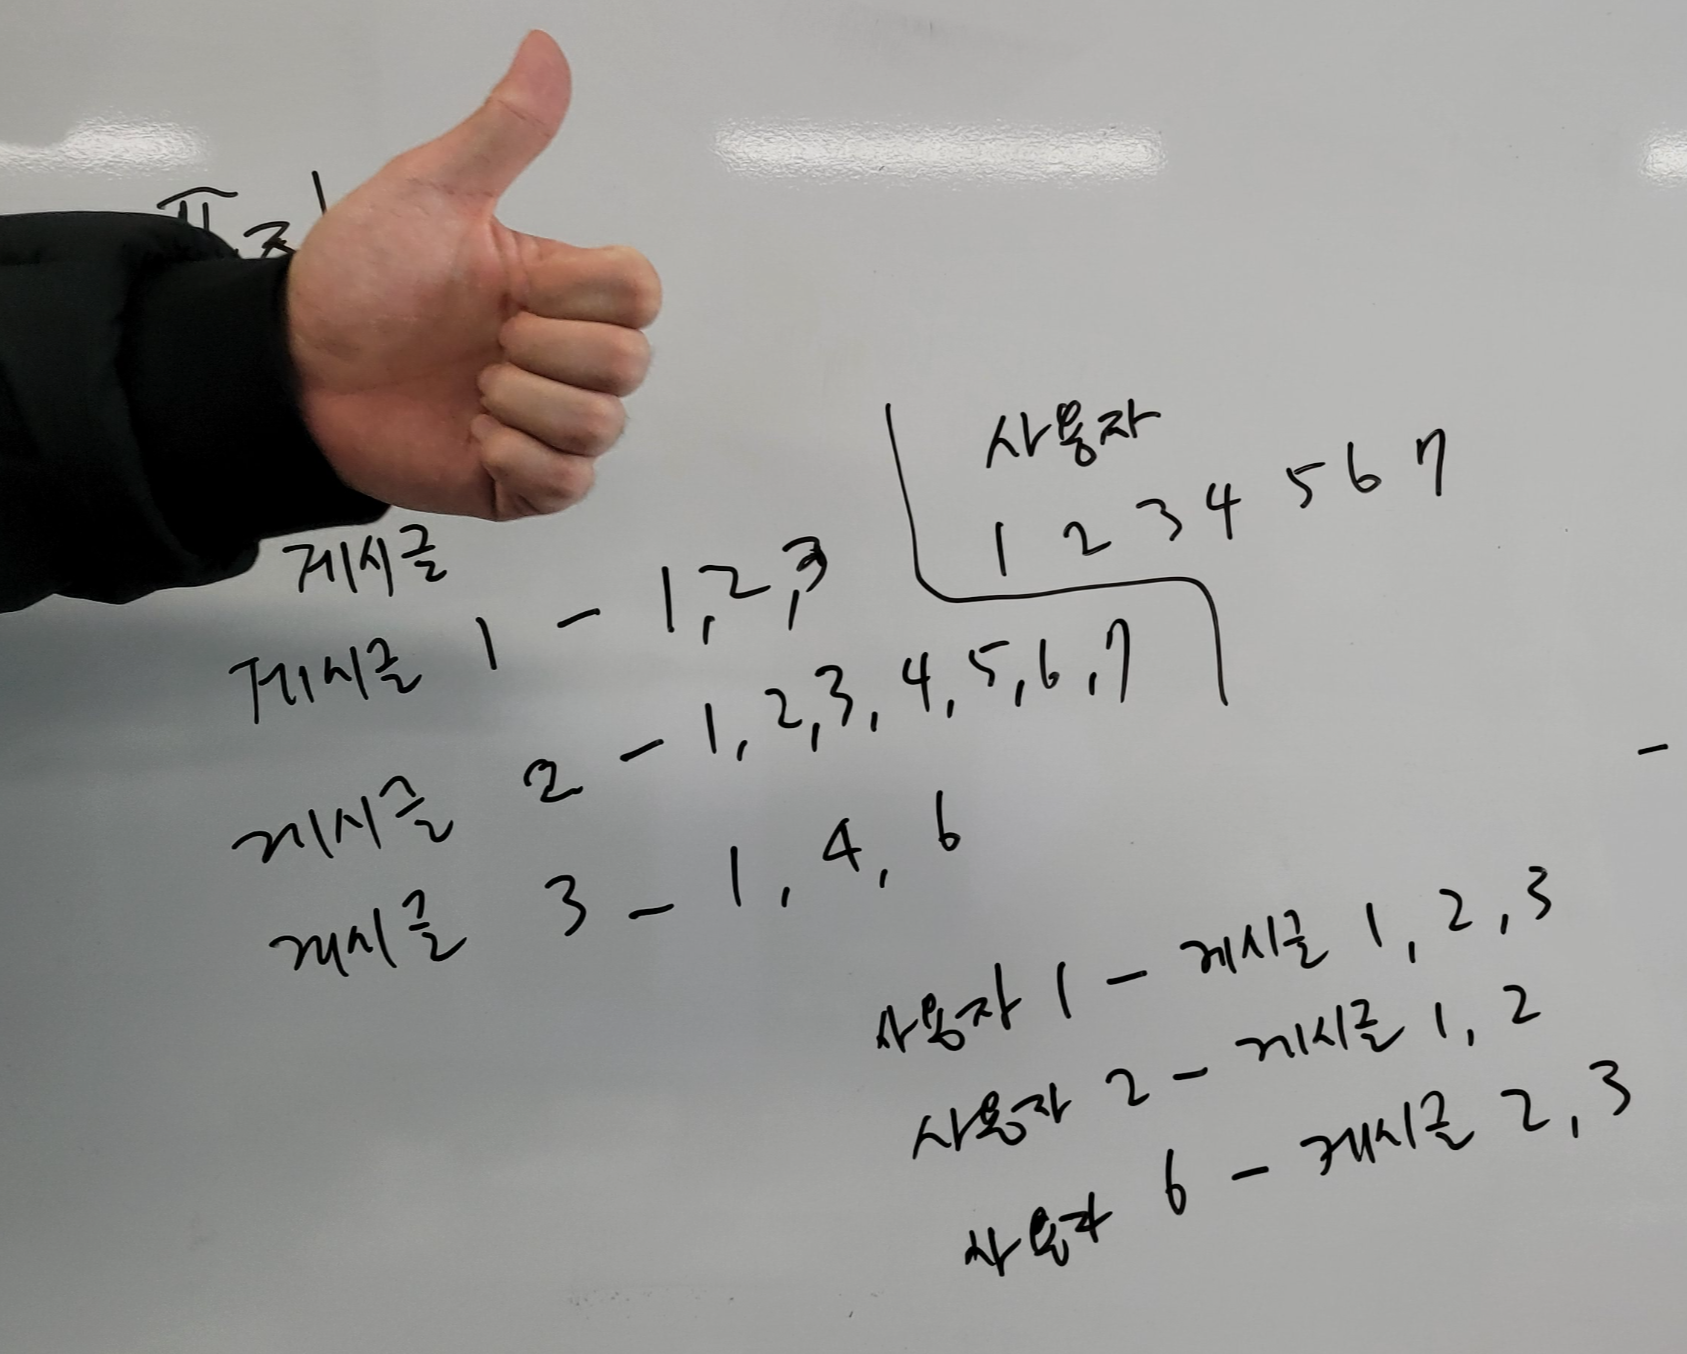 사용자
1 2 3 4 5 6 7
게시글
게시글 1 - 1,2,3
게시글 2 - 1,2,3,4,5,6,7
게시글 3 - 1,4,6
사용자 1 - 게시글 1,2,3
사용자 2 - 게시글 1,2
사용자 6 - 게시글 2,3